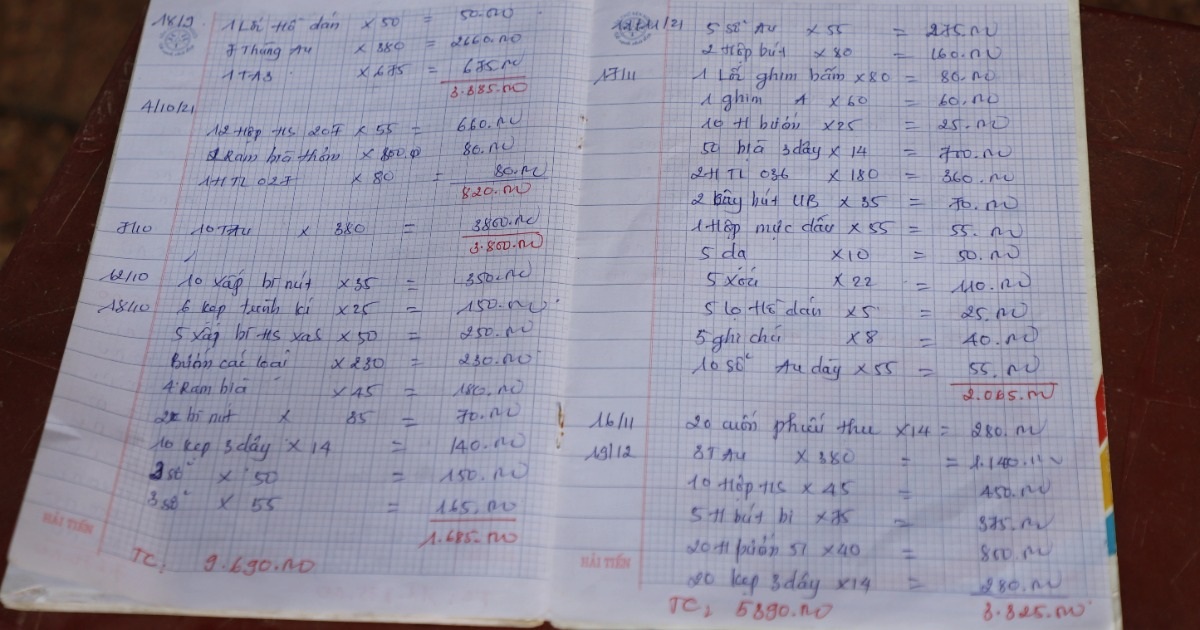 18/9 1 Lốc Hồ dán x 50 = 50.000
7 Thùng A4 x 380 = 2660.000
1 TA3 x 675 = 675.000
3.385.000
4/10/21
12 Hộp HS 207 x 55 = 660.000
Ram bìa thơm = 80.000
1 H TL 027 x 80 = 80.000
820.000
7/10 10 TA4 x 380 = 3800.000
3.800.000
12/10 10 xấp bì nút x 35 = 350.000
18/10 6 kẹp trình kí x 25 = 150.000
5 xấp bì HS x 50 = 250.000
Bướm các loại x 230 = 230.000
4 Ram bìa x 45 = 180.000
2x bì nút x 35 = 70.000
10 kẹp 3 dây x 14 = 140.000
3 sổ x 50 = 150.000
3 sổ x 55 = 165.000
1.685.000
HẢI TIẾN
TC: 9.690.000
12/11/21 5 sổ A4 x 55 = 275.000
2 Hộp bút x 80 = 160.000
17/11 1 Lốc ghim bấm x 80 = 80.000
1 ghim A x 60 = 60.000
10 H bướm x 25 = 25.000
50 bìa 3 dây x 14 = 700.000
2 H TL 036 x 180 = 360.000
2 cây bút UB x 35 = 70.000
1 Hộp mực dấu x 55 = 55.000
5 da x 10 = 50.000
5 xóa x 22 = 110.000
5 lọ Hồ dán x 5 = 25.000
5 ghi chú x 8 = 40.000
10 sổ A4 dày x 55 = 55.000
2.065.000
16/11 20 cuốn phiếu thu x 14 = 280.000
19/12 3T A4 x 380 = = 1.140.000
10 Hộp HS x 45 = 450.000
5 H bút bi x 75 = 375.000
20 H bướm 51 x 40 = 800.000
HẢI TIẾN
20 kẹp 3 dây x 14 = 280.000
TC: 5390.000 3.325.000